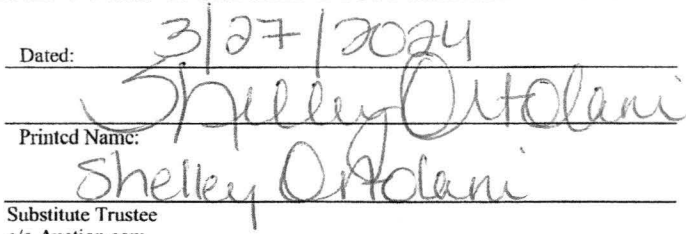 Dated: 3/27/2024
Shelley Ortolani
Printed Name:
Shelley Ortolani
Substitute Trustee
c/o Auction.com